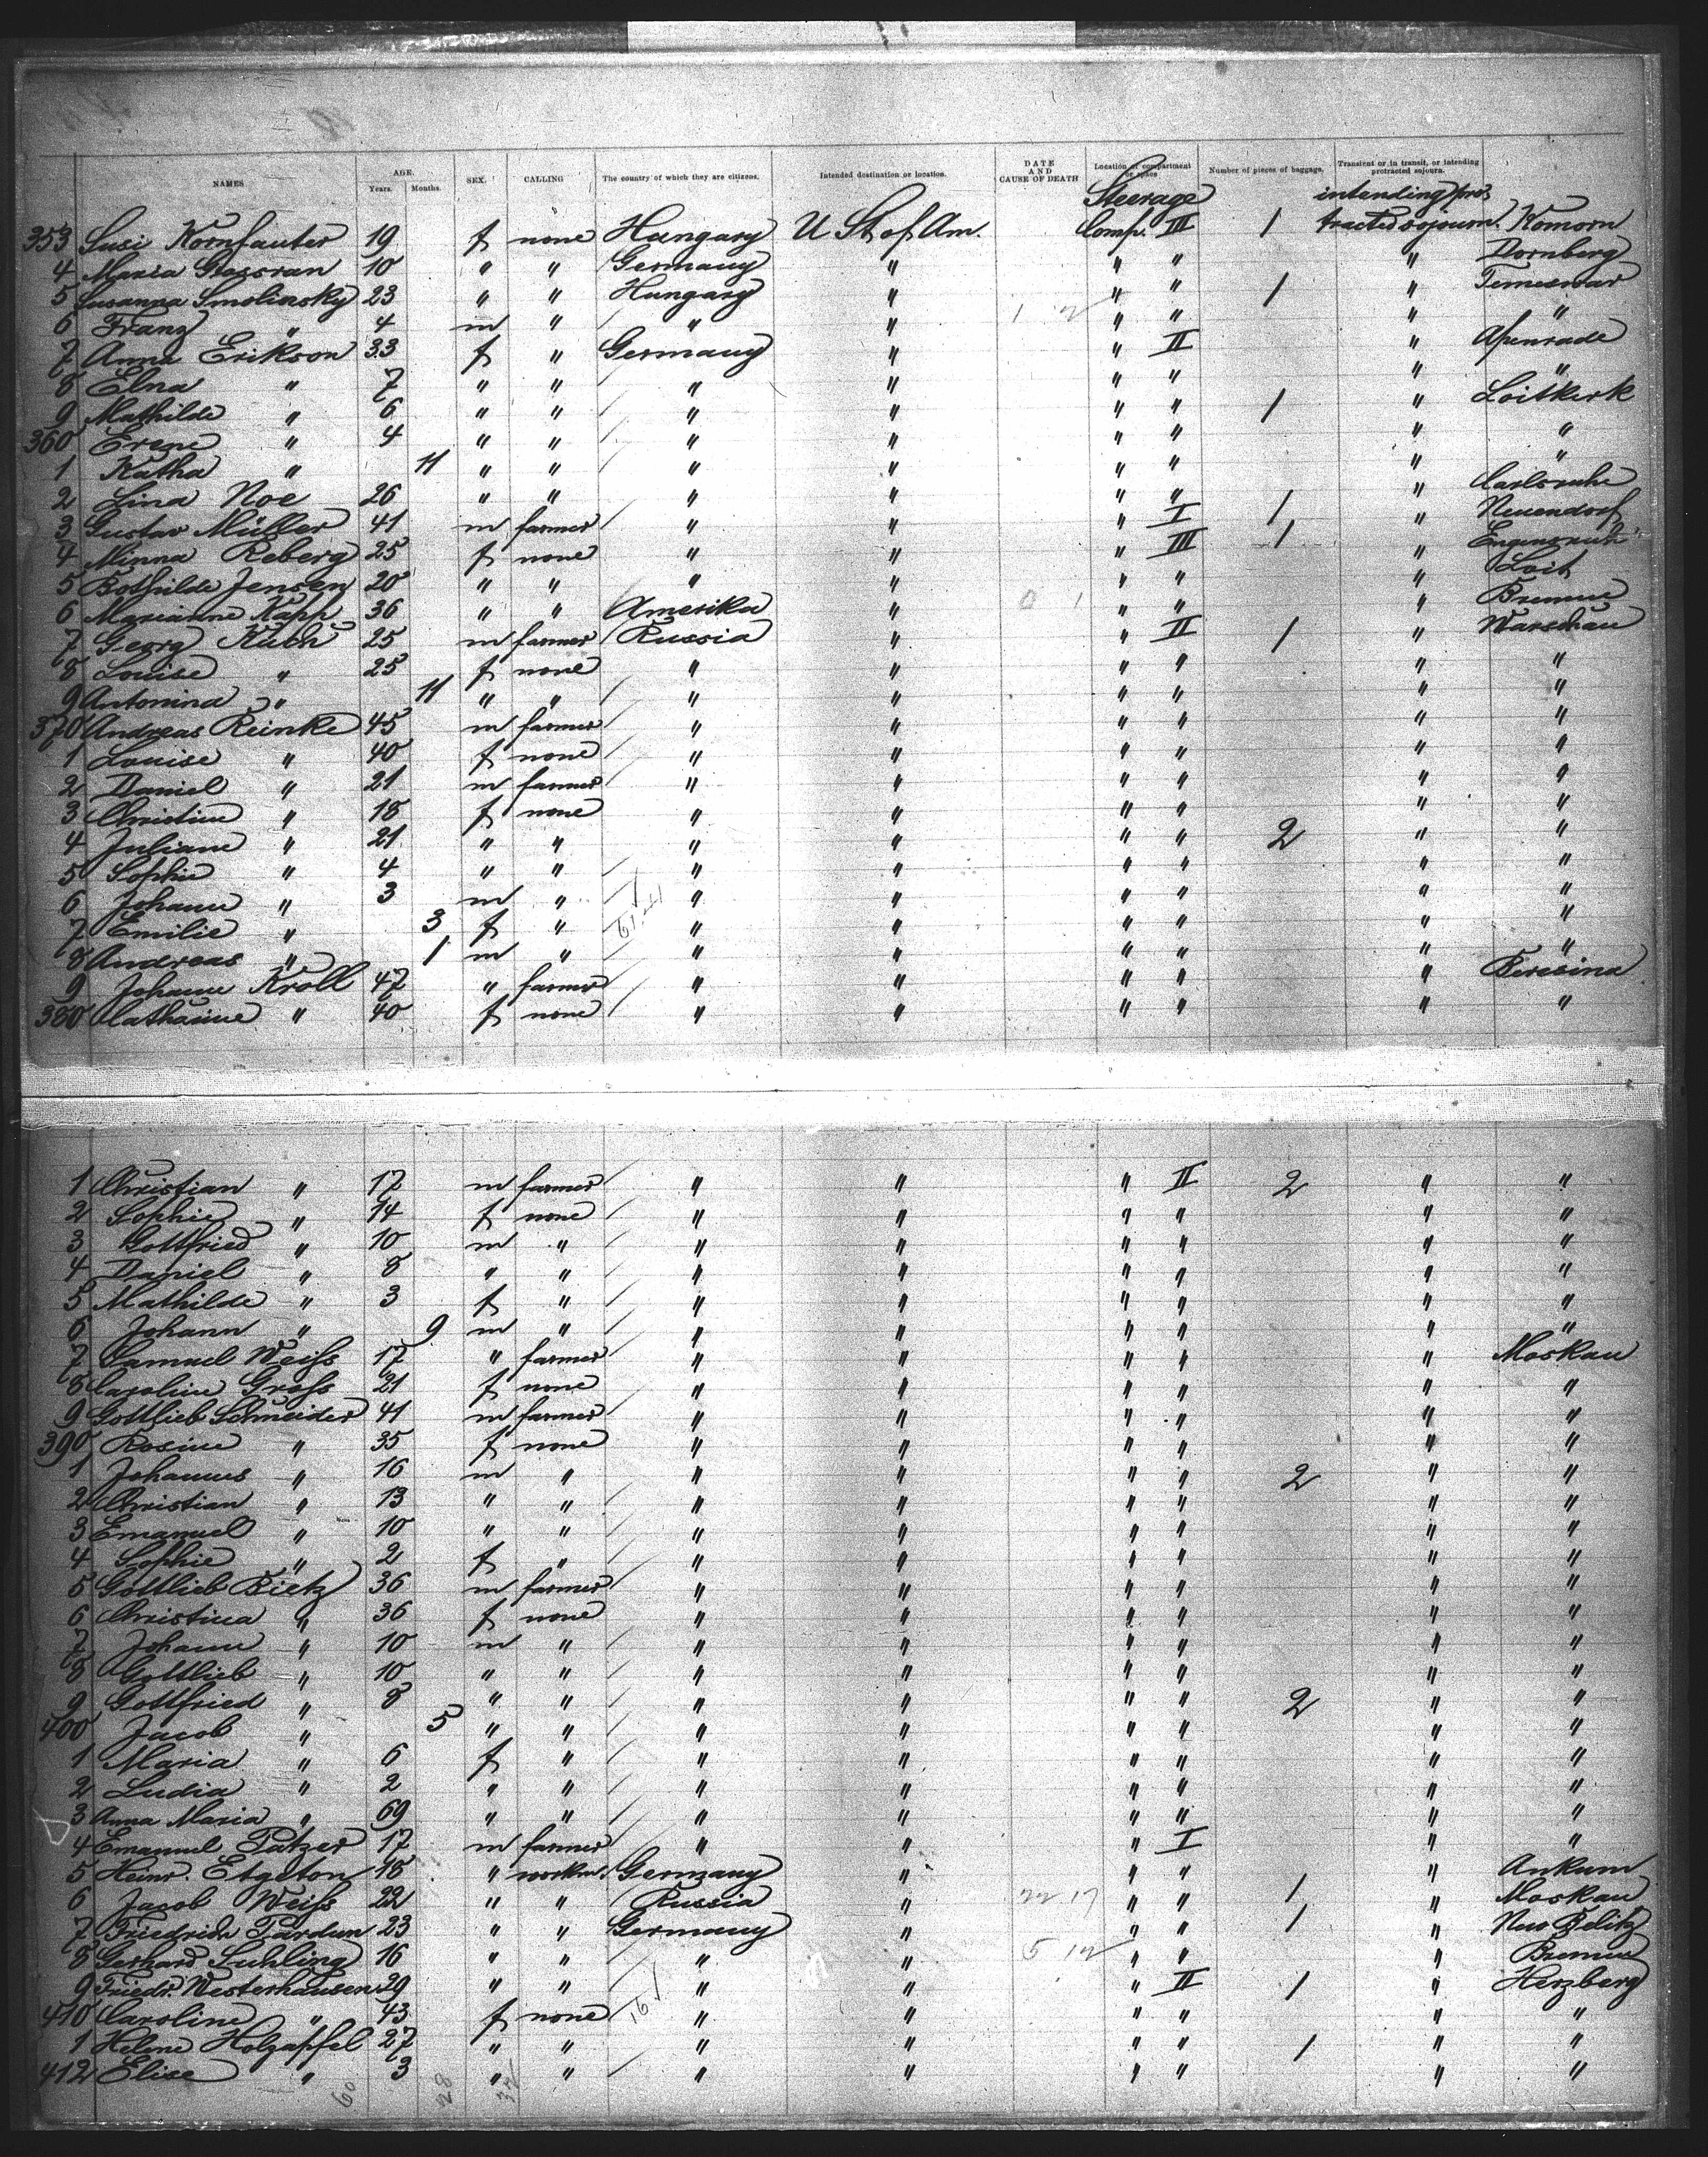 NAMES AGE. Years. Months. SEX. CALLING The country of which they are citizens. Intended destination or location. DATE AND CAUSE OF DEATH Location of compartment or space Number of pieces of baggage. Transient or in transit, or intending protracted sojourn.
Steerage intending pro-
353 Susi Kornfauter 19 f none Hungary U St of Am. Comp. III 1 tracted sojourn. Komorn
4 Maria 10 " " Germany " " " " Dornberg
5 Susanna Smolinsky 23 " " Hungary " " " 1 " Temeswar
6 Franz " 4 m " " " 1 2 " " " "
7 Anna Erikson 33 f " Germany " " II " Apenrade
8 Elna " 7 " " " " " " " "
9 Mathilde " 6 " " " " " " 1 " Loitkerk
360 Erene " 4 " " " " " " " "
1 Katha " 11 " " " " " " " "
2 Lina Noe 26 " " " " " " 1 " Carlsruhe
3 Gustav Müller 41 m farmer " " " I 1 " Neuendorf
4 Minna Reberg 25 f none " " " III 1 "
5 Bothilde Jensen 20 " " " " " " " Loit
6 Marianne Kapp 36 " " Amerika " 0 1 " " " Bremen
7 Georg Kuch 25 m farmer Russia " " II 1 " Warschau
8 Louise " 25 f none " " " " " "
9 Antonina " 11 " " " " " " " "
370 Andreas Reinke 45 m farmer " " " " " "
1 Louise " 40 f none " " " " " "
2 Daniel " 21 m farmer " " " " " "
3 Christine " 18 f none " " " " " "
4 Juliane " 21 " " " " " " 2 " "
5 Sophie " 4 " " " " " " " "
6 Johann " 3 m " " " " " " "
7 Emilie " 3 f " " " " " " "
8 Andreas " 1 m " " " " " " "
9 Johann Kroll 47 " farmer " " " " " Beresina
380 Catharine " 40 f none " " " " " "
1 Christian " 17 m farmer " " " II 2 " "
2 Sophie " 14 f none " " " " " "
3 Gottfried " 10 m " " " " " " "
4 Daniel " 8 " " " " " " " "
5 Mathilde " 3 f " " " " " " "
6 Johann " 9 m " " " " " " "
7 Samuel Weiss 17 " farmer " " " " " Moskau
8 Caroline Gross 21 f none " " " " " "
9 Gottlieb Schneider 41 m farmer " " " " " "
390 Rosine " 35 f none " " " " " "
1 Johannes " 16 m " " " " " 2 " "
2 Christian " 13 " " " " " " " "
3 Emanuel " 10 " " " " " " " "
4 Sophie " 2 f " " " " " " "
5 Gottlieb Bietz 36 m farmer " " " " " "
6 Christina " 36 f none " " " " " "
7 Johann " 10 m " " " " " " "
8 Gottlieb " 10 " " " " " " " "
9 Gottfried " 8 " " " " " " 2 " "
400 Jacob " 5 " " " " " " " "
1 Maria " 6 f " " " " " " "
2 Ludia " 2 " " " " " " " "
3 Anna Maria " 69 " " " " " " " "
4 Emanuel Putzer 17 m farmer " " " I " "
5 Heinr. Etgeton 18 " workm. Germany " " " 1 " Ankum
6 Jacob Weiss 22 " " Russia " " " 1 " Moskau
7 Friedrich Pardun 23 " " Germany " " " 1 " Neu Belitz
8 Gerhard Suhling 16 " " " " 5 12 " " " Bremen
9 Friedr. Westerhausen 29 " " " " " II 1 " Herzberg
410 Caroline " 43 f none " " " " " "
1 Helene Holzapfel 27 " " " " " " 1 " "
412 Elise " 3 " " " " " " " "
60 28 32